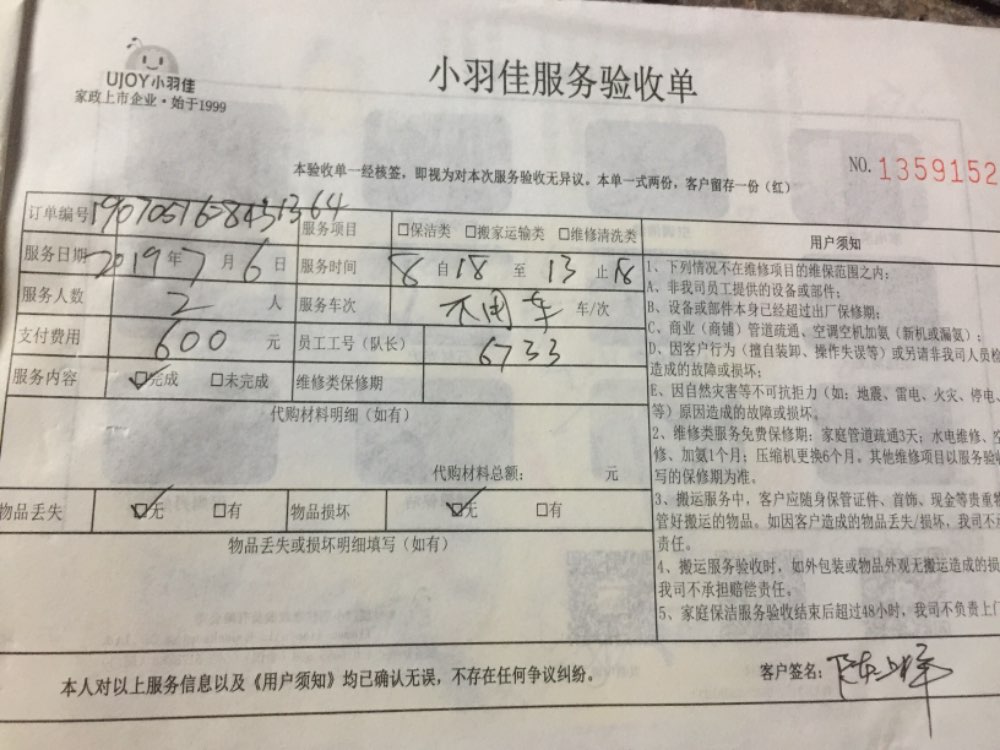 UJOY小羽佳
家政上市企业·始于1999
小羽佳服务验收单
本验收单一经核签，即视为对本次服务验收无异议。本单一式两份，客户留存一份（红）
NO.1359152
订单编号
服务项目 □保洁类 □搬家运输类 □维修清洗类
服务日期 2019年7月6日 服务时间 8自18至13止18
服务人数 2人 服务车次 不用车 车/次
支付费用 600元 员工工号（队长） 6733
服务内容 ☑完成 □未完成 维修类保修期
代购材料明细（如有）
代购材料总额： 元
物品丢失 ☑无 □有 物品损坏 ☑无 □有
物品丢失或损坏明细填写（如有）
用户须知
1、下列情况不在维修项目的维保范围之内：
A、非我司员工提供的设备或部件；
B、设备或部件本身已经超过出厂保修期；
C、商业（商铺）管道疏通、空调空机加氨（新机或漏氨）；
D、因客户行为（擅自装卸、操作失误等）或另请非我司人员检
造成的故障或损坏；
E、因自然灾害等不可抗拒力（如：地震、雷电、火灾、停电、
等）原因造成的故障或损坏。
2、维修类服务免费保修期：家庭管道疏通3天；水电维修、空
修、加氨1个月；压缩机更换6个月。其他维修项目以服务验收
写的保修期为准。
3、搬运服务中，客户应随身保管证件、首饰、现金等贵重物
管好搬运的物品。如因客户造成的物品丢失/损坏，我司不承
责任。
4、搬运服务验收时，如外包装或物品外观无搬运造成的损
我司不承担赔偿责任。
5、家庭保洁服务验收结束后超过48小时，我司不负责上门
本人对以上服务信息以及《用户须知》均已确认无误，不存在任何争议纠纷。
客户签名：